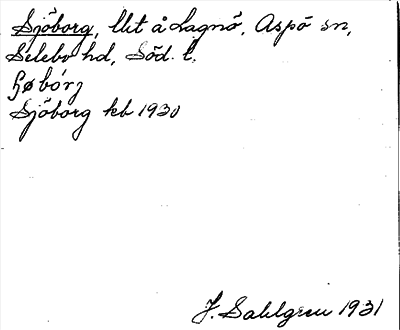 Sjöborg, lht å Lagnö, Aspö sn,
Selebo hd, Söd. l.
Sjöborg kb 1930
J. Sahlgren 1931